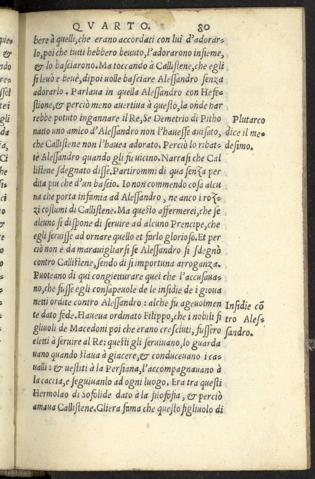 QVARTO. 80
bere à quelli, che erano accordati con lui d'adorar-
lo, poi che tutti hebbero beuuto, l'adorarono insieme,
& lo basciarono. Ma toccando à Callistene, che egli
si leuò e beuè, di poi uolle basciare Alessandro senza
adorarlo. Parlaua in quella Alessandro con Hefe-
stione, & perciò meno auertiua à questo, la onde har
rebbe potuto ingannare il Re, Se Demetrio di Pitho
natto uno amico d'Alessandro non l'hauesse auisato,
che Callistene non l'haueа adorato. Perciò lo ributtò
Alessandro quando gli fu uicino. Narrasi che Cal
listene sdegnato disse. Partirommi di qua senza per
dita piu che d'un bascio. Io non commendo cosa alcu
na che porta infamia ad Alessandro, ne anco i roz-
zi costumi di Callistene. Ma questo affermerei, che se
alcuno si dispone di seruire ad alcuno Prencipe, che
egli seruisse ad ornare quello et farlo glorioso. Et per
ciò non è da marauigliarsi se Alessandro si sdegnò
contro Callistene, sendo di si importuna arroganza.
Poteano di qui congietturare quei che l'accusaua-
no, che fusse egli consapeuole de le insidie de i gioua
netti ordite contro Alessandro: alche fu ageuolmen
te dato fede. Haueua ordinato Filippo, che i nobili fi
gliuoli de Macedoni poi che erano cresciuti, fussero
eletti à seruire al Re: questi gli seruiuano, lo guarda
uano quando staua à giacere, & conduceuano i ca-
ualli: & uestiti à la Persiana, l'accompagnauano à
la caccia, e seguiuanlo ad ogni luogo. Era tra questi
Hermolao di Sofolide dato à la filosofia, & perciò
amaua Callistene. Gliera fama che questo figliuolo di
Plutarco
dice il me-
desimo.
Insidie cō
tro Ales-
sandro.